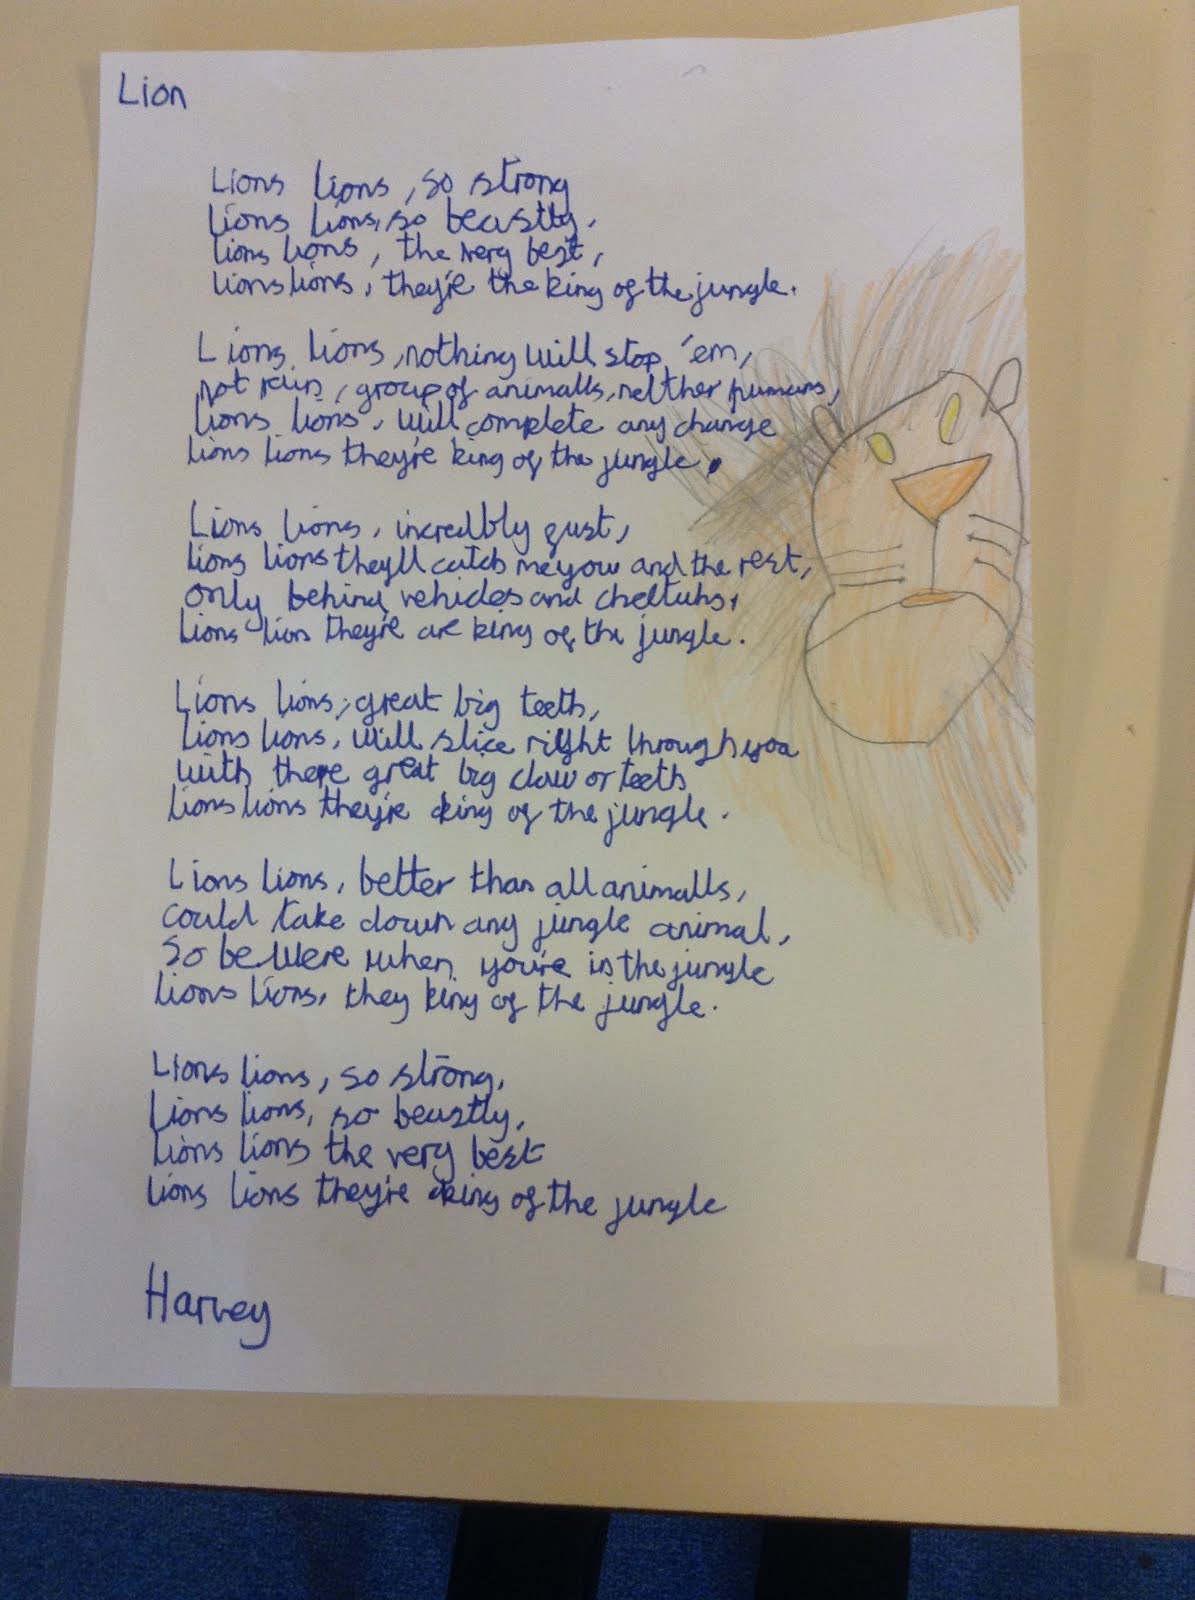 Lion
Lions lions, so strong
lions lions, so beastly,
lions lions, the very best,
lions lions, they're the king of the jungle.
Lions lions, nothing will stop 'em,
not rain, group of animalls, neither pumans,
lions lions, will complete any change
lions lions they're king of the jungle.
Lions lions, incredbly fast,
lions lions they'll catch me you and the rest,
only behind vehicles and
lions lion they're are king of the jungle.
Lions lions, great big teeth,
Lions lions, will slice right through you
with there great big claw or teeth
lions lions they're king of the jungle.
Lions lions, better than all animalls,
could take down any jungle animal,
So be were when you're in the jungle
lions lions, they king of the jungle.
Lions lions, so strong,
lions lions, so beastly,
lions lions the very best
lions lions they're king of the jungle
Harvey